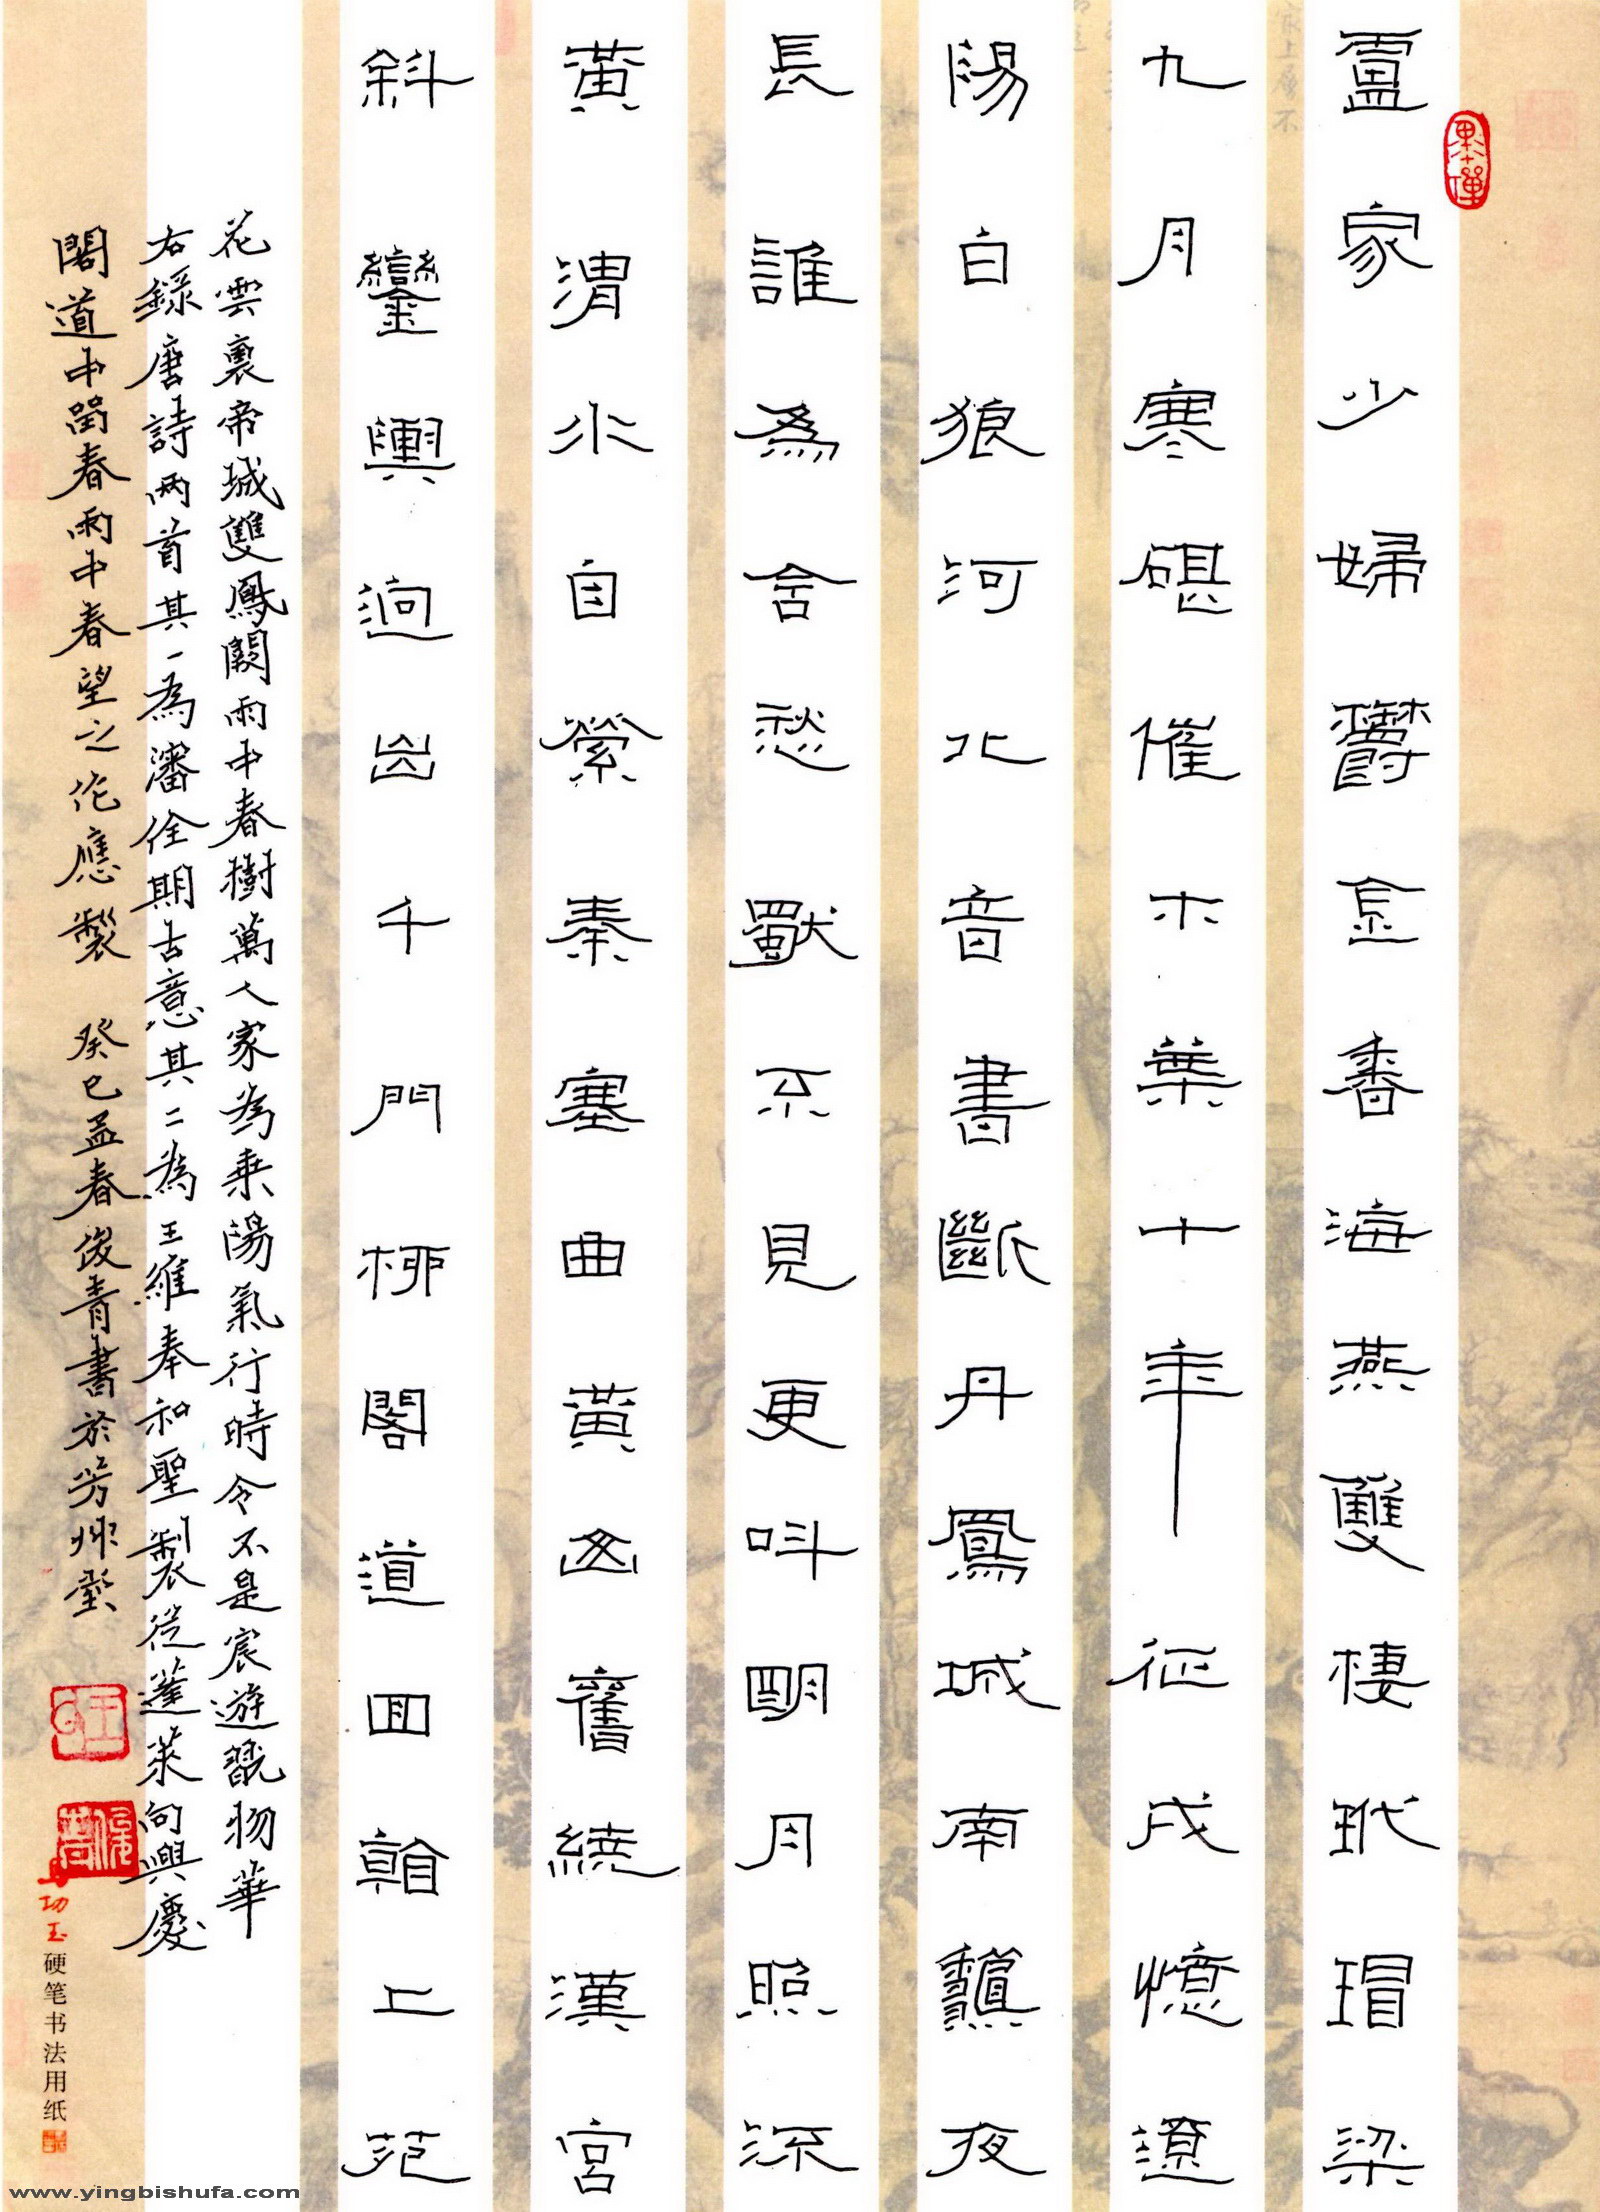 盧家少婦鬱金香海燕雙棲玳瑁梁
九月寒碪催木葉十年征戍憶遼
陽白狼河北音書斷丹鳳城南龝夜
長誰為含愁獨不見更呌明月照流
黃渭水自縈秦塞曲黃山舊繞漢宮
斜鑾輿迥出千門柳閣道回翰上苑
花雲裏帝城雙鳳闕雨中春樹萬人家為乗陽氣行時令不是宸遊翫物華
右錄唐詩兩首其一為瀋佺期古意其二為王維奉和聖製從蓬萊向興慶
閣道中留春雨中春望之作應製 癸巳孟春俊青書於芳
硬笔书法用纸
www.yingbishufa.com